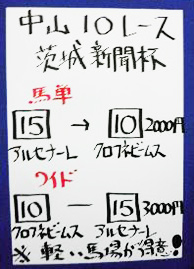 中山10レース
茨城新聞杯
馬単
15 → 10 2000円
アルセナーレ クロフネビームス
ワイド
10 ー 15 3000円
クロフネビームス アルセナーレ
※軽い馬場が得意!